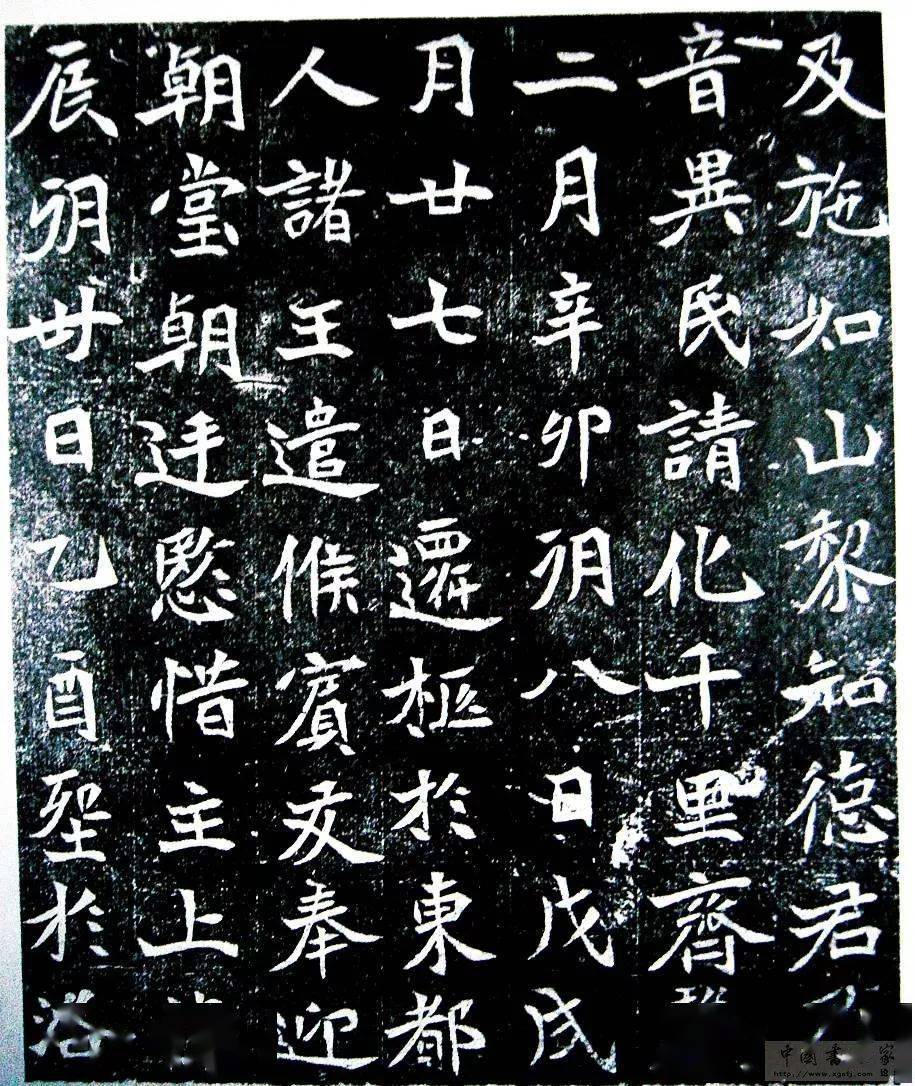 及施如山黎知德君
音異民請化千里齊
二月辛卯朔八日戊戌
月廿七日遷柩於東都
人諸王遣候賓友奉迎
朝堂朝廷愍惜主上
辰朔卅日乙酉於洛
中國書家